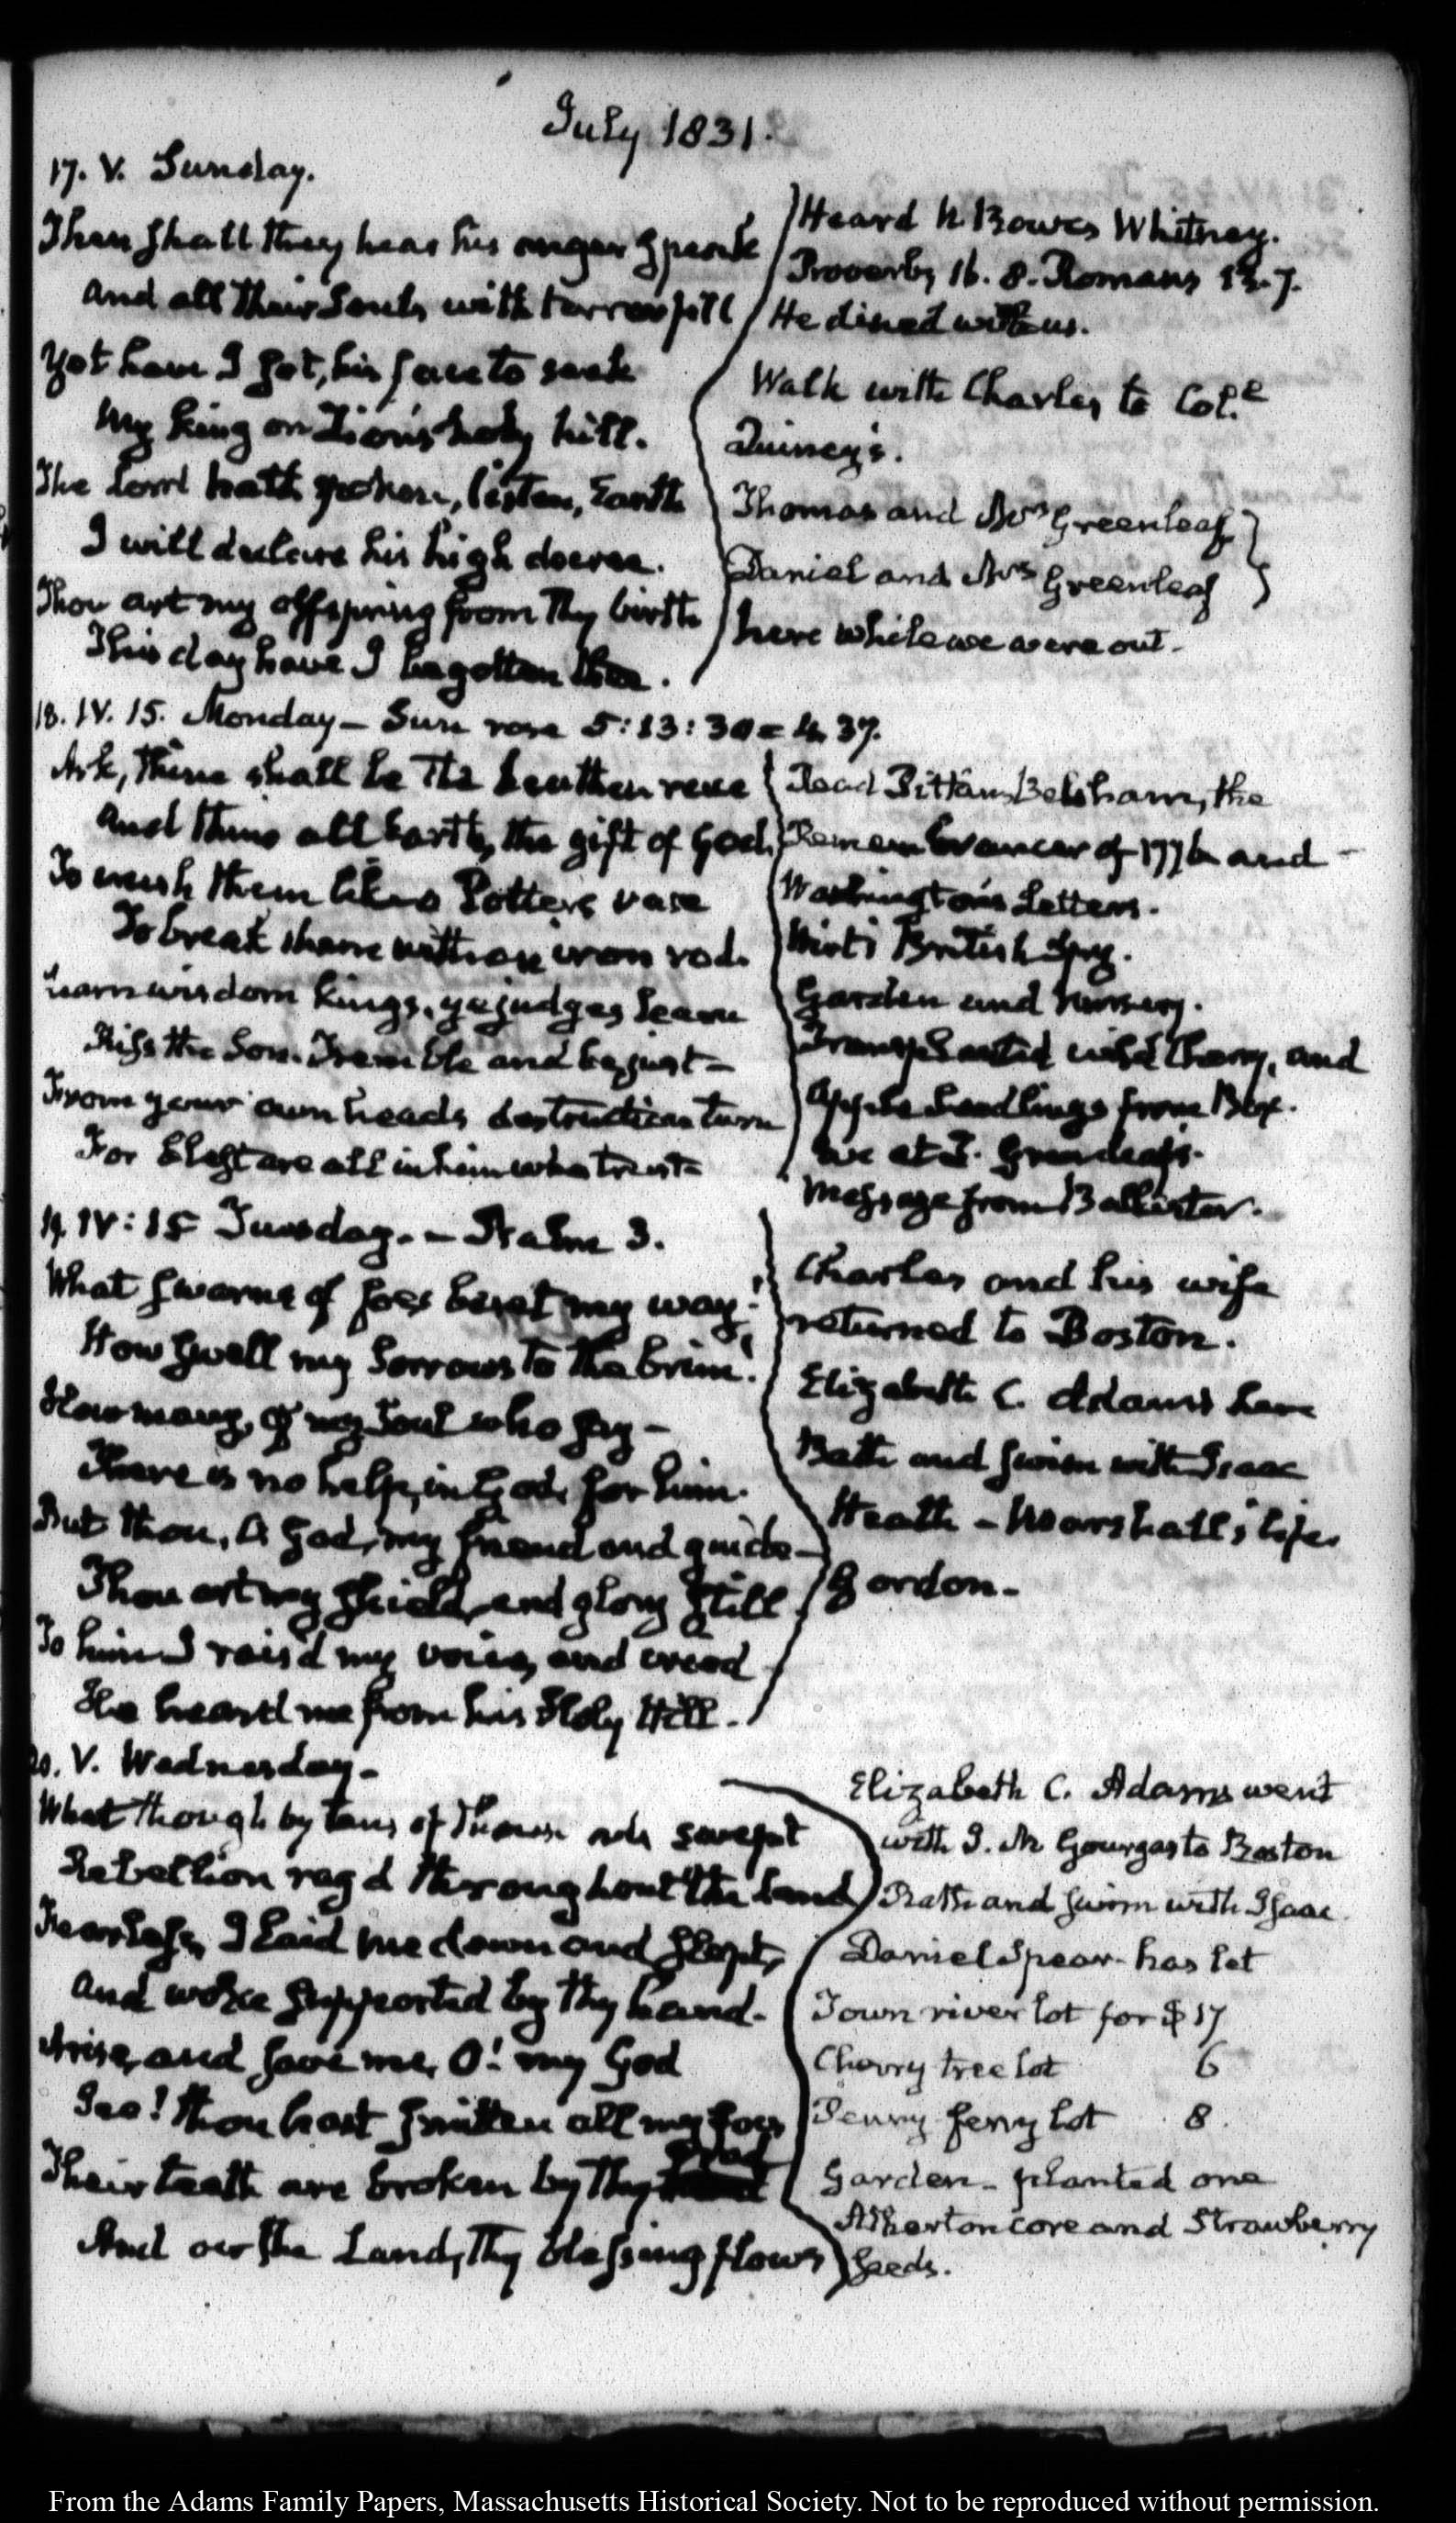 July 1831.
17. V. Sunday.
Then shall they hear his anger speak
And all their Souls with terror fill
Yet have I set, his face to seek
My king on Zion's holy hill.
The Lord hath spoken, listen, Earth
I will declare his high decree.
Thou art my offspring from thy birth
This day have I begotten thee.
Heard N. Bowes Whitney.
Proverbs 16. 8. Romans 13. 7.
He dined with us.
Walk with Charles to Col.
Quincy's.
Thomas and Mrs Greenleaf
Daniel and Mrs Greenleaf
here while we were out.
18. IV. 15. Monday – Sun rose 5:13:30 = 4. 37.
Ask, thine shall be the heathen race
And thine all Earth, the gift of God,
To crush them like a Potter's vase
To break them with an iron rod.
Learn wisdom kings, ye judges learn
Kiss the Son. Tremble and be just –
From your own heads destruction turn
For blest are all in him who trust
Read Belsham, the
Remembrancer of 1776 and
Washington's Letters.
Wirt's British Spy.
Garden and Nursery.
Transplanted wild Cherry, and
Apple Seedlings from Box.
Eve at T. Greenleaf's.
Message from Ballister.
19. IV: 15 Tuesday. – Psalm 3.
What swarms of foes beset my way!
How swell my Sorrows to the brim!
How many, of my Soul who say –
There is no help, in God, for him.
But thou, O God, my friend and guide –
Thou art my shield, and glory still
To him I rais'd my voice, and cried
He heard me from his Holy Hill.
Charles and his wife
returned to Boston.
Elizabeth C. Adams here
Bath and swim with Isaac
Heath – Marshall's life
Gordon –
20. V. Wednesday –
What though by tens of Thousands swept
Rebellion rag'd throughout the land
Fearless, I laid me down and slept,
And woke supported by thy hand.
Arise, and save me, O! my God
See! thou hast smitten all my foes
Their teeth are broken by thy
And o'er the Land, thy blessing flows
Elizabeth C. Adams went
with J. M Gourgas to Boston
Bath and swim with Isaac
Daniel Spear has let
Town river lot for $17
Cherry tree lot 6
Penny ferry lot 8.
Garden – planted one
Atherton core and Strawberry
Seeds.
From the Adams Family Papers, Massachusetts Historical Society. Not to be reproduced without permission.